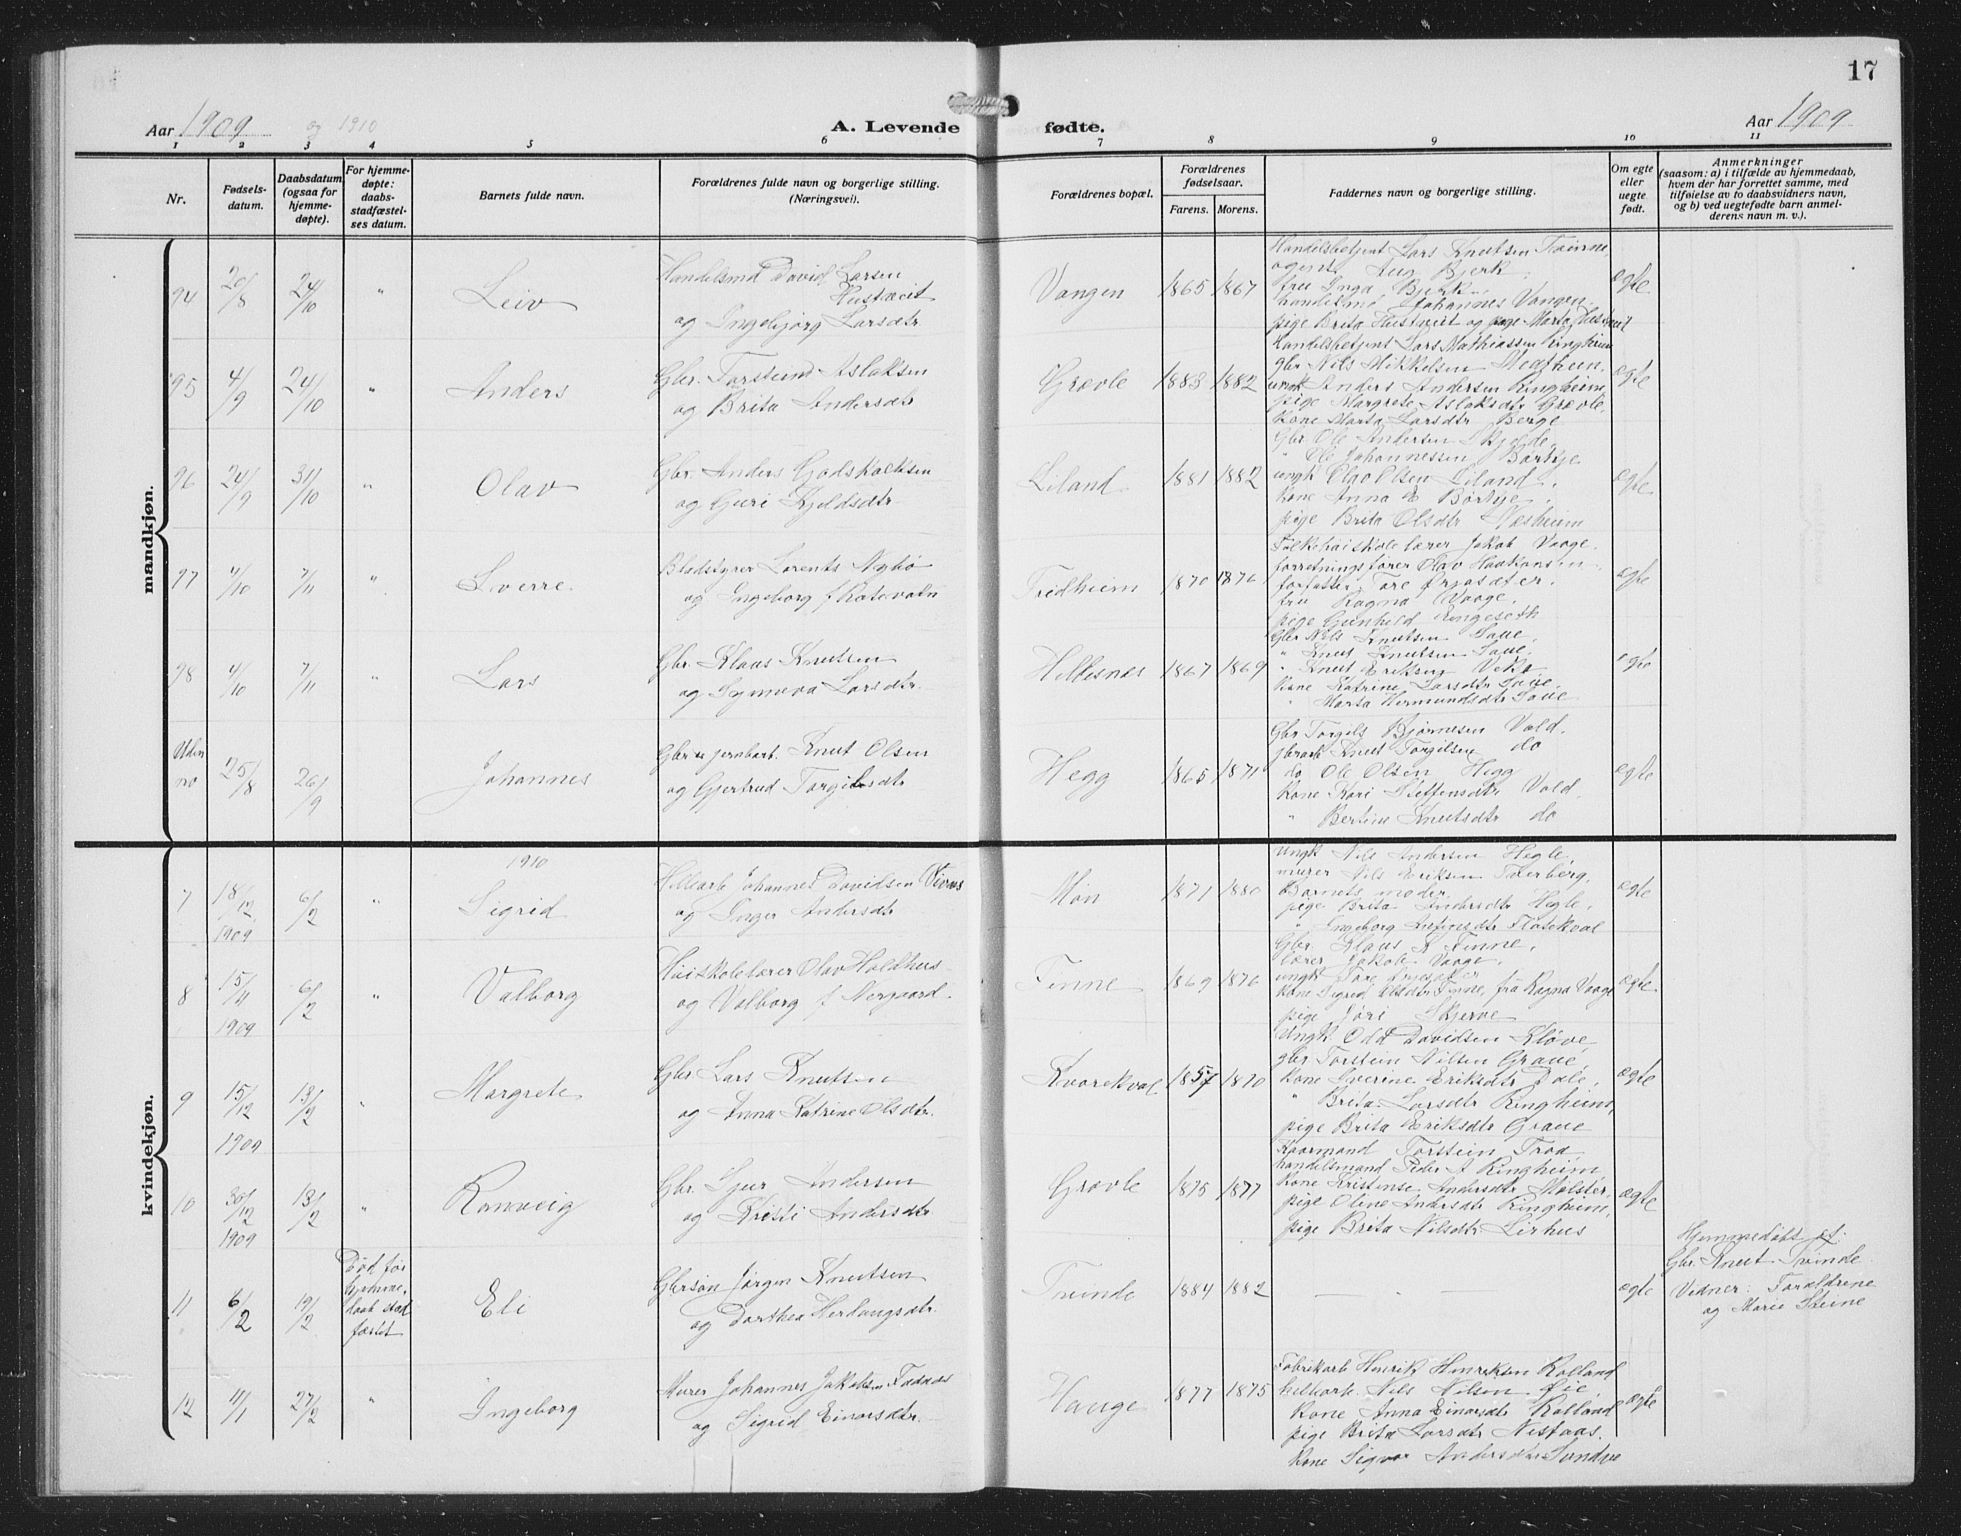 17
Aar 1909 og 1910 A. Levende fødte. Aar 1909
1 2 3 4 5 6 7 8 9 10 11
Nr.
Fødsels-
datum.
Daabsdatum
(ogsaa for
hjemme-
døpte).
For hjemme-
døpte:
daabs-
stadfæstel-
ses datum.
Barnets fulde navn.
Forældrenes fulde navn og borgerlige stilling.
(Næringsvei).
Forældrenes bopæl.
Forældrenes
fødselsaar.
Farens. Morens.
Faddernes navn og borgerlige stilling.
Om egte
eller
uegte
født.
Anmerkninger
(saasom: a) i tilfælde av hjemmedaab,
hvem der har forrettet samme, med
tilføielse av to daabsvidners navn,
og b) ved uegtefødte barn anmel-
derens navn m. v.).
mandkjøn.
94 20/8 24/10 " Leiv
Handelsmd David Larsen
Hustveit
og Ingebjørg Larsdtr
Vangen 1865 1867
Handelsbetjent Lars Knutsen Tvinne,
agent Aug Bjerk
fru Inga Bjerk
handelsmd Johannes Vangen
pige Brita Hustveit og pige Marta Hustveit
egte
95 4/9 24/10 " Anders
Gbr. Torstein Aslaksen
og Brita Andersdtr
Grovle 1883 1882
Handelsbetjent Lars Mathiassen Ringheim
gbr Nils Mikkelsen Medheim
ungk Anders Andersen Ringheim,
pige Margrete Aslaksdtr Grovle,
kone Marta Larsdtr Berge
egte
96 24/9 31/10 " Olav
Gbr. Anders Godskalksen
og Guri Kjeldsdtr
Liland 1881 1882
Gbr Ole Andersen Skjelde,
" Ole Johannessen Børtye
ungk Olav Olsen Liland
kone Anna E Børtye
pige Brita Olsdtr Næsheim
egte
97 4/10 7/11 " Sverre
Bladstyrer Lorents Nybø
og Ingeborg f Kotevatn
Fredheim 1870 1876
Folkehøiskolelærer Jakob Vaage,
forretningsfører Olav Haakonsen
forfatter Tore Ørjasæter,
fru Ragna Vaage,
pige Gunhild Ringeseth
egte
98 4/10 7/11 " Lars
Gbr. Klaas Knutsen
og Synneva Larsdtr
Hillesnes 1867 1869
Gbr Nils Knutsen Saue,
" Knut Knutsen Saue,
" Knut Eriksen Veka
kone Katrine Larsdtr Saue,
" Marta Hermundsdtr Saue
egte
Uden no 25/8 26/9 Johannes
Gbr og jernbarb. Knut Olsen
og Gjertrud Torgilsdtr
Hegg 1865 1871
Gbr Torgils Bjørnesen Vold,
jbrarb Knut Torgilsen do
do Ole Olsen Hegg
kone Kari Steffensdtr Vold,
" Bertine Knutsdtr do
egte
kvindekjøn.
1910
7 18/12 1909 6/2 " Sigrid
Hellearb Johannes Davidsen
og Inger Andersdtr
Møn 1871 1880
Ungk Nils Andersen Hegle,
murer Nils Eriksen
Barnets moder
pige Brita Andersdtr Hegle,
" Ingeborg Flatekval
egte
8 15/11 1909 6/2 " Valborg
Høiskolelærer Olav Holdhus
og Valborg f Nergaard
Finne 1869 1876
Gbr. Klaus K Finne,
lærer Jakob Vaage,
ungk Tore Ørjasæter
kone Sigrid Olsdtr Finne, fru Ragna Vaage
pige Jori Skjerve
egte
9 15/12 1909 13/2 " Margrete
Gbr Lars Knutsen
og Anna Katrine Olsdtr.
Kvarekval 1857 1870
Ungk Odd Davidsen Kløve,
gbr Torstein Nilsen Graue,
kone Sverine Eriksdtr Dale,
" Brita Larsdtr Ringheim,
pige Brita Eriksdtr Graue
egte
10 30/12 1909 13/2 " Ranveig
Gbr. Sjur Andersen
og Kristi Andersdtr
Grovle 1875 1877
Kaarmand Torstein Troa,
handelsmand Peder A Ringheim,
kone Kristense Andersdtr Mølster,
pige Oline Andersdtr Ringheim,
pige Brita Nilsdtr Lirhus
egte
11 6/2 19/2
Død før
hjemme-
daab stad
fæstet
Eli
Gbrsøn Jørgen Knutsen
og Dorthea Herlaugsdtr.
Tvinde 1884 1882
— — —
egte
Hjemmedøbt af:
Gbr. Knut Tvinde
Vidner: Forældrene
og Marie Steine
12 11/1 27/2 " Ingeborg
Murer Johannes Jakobsen Fadnæs
og Sigrid Einarsdtr.
Hauge 1877 1875
Fabrikarb Henrik Henriksen Rolland
hellearb. Nils Nilsen Øie
kone Anna Einarsdtr Rolland
pige Brita Larsdtr Nistaas,
kone Sigvor Andersdtr Sundve
egte